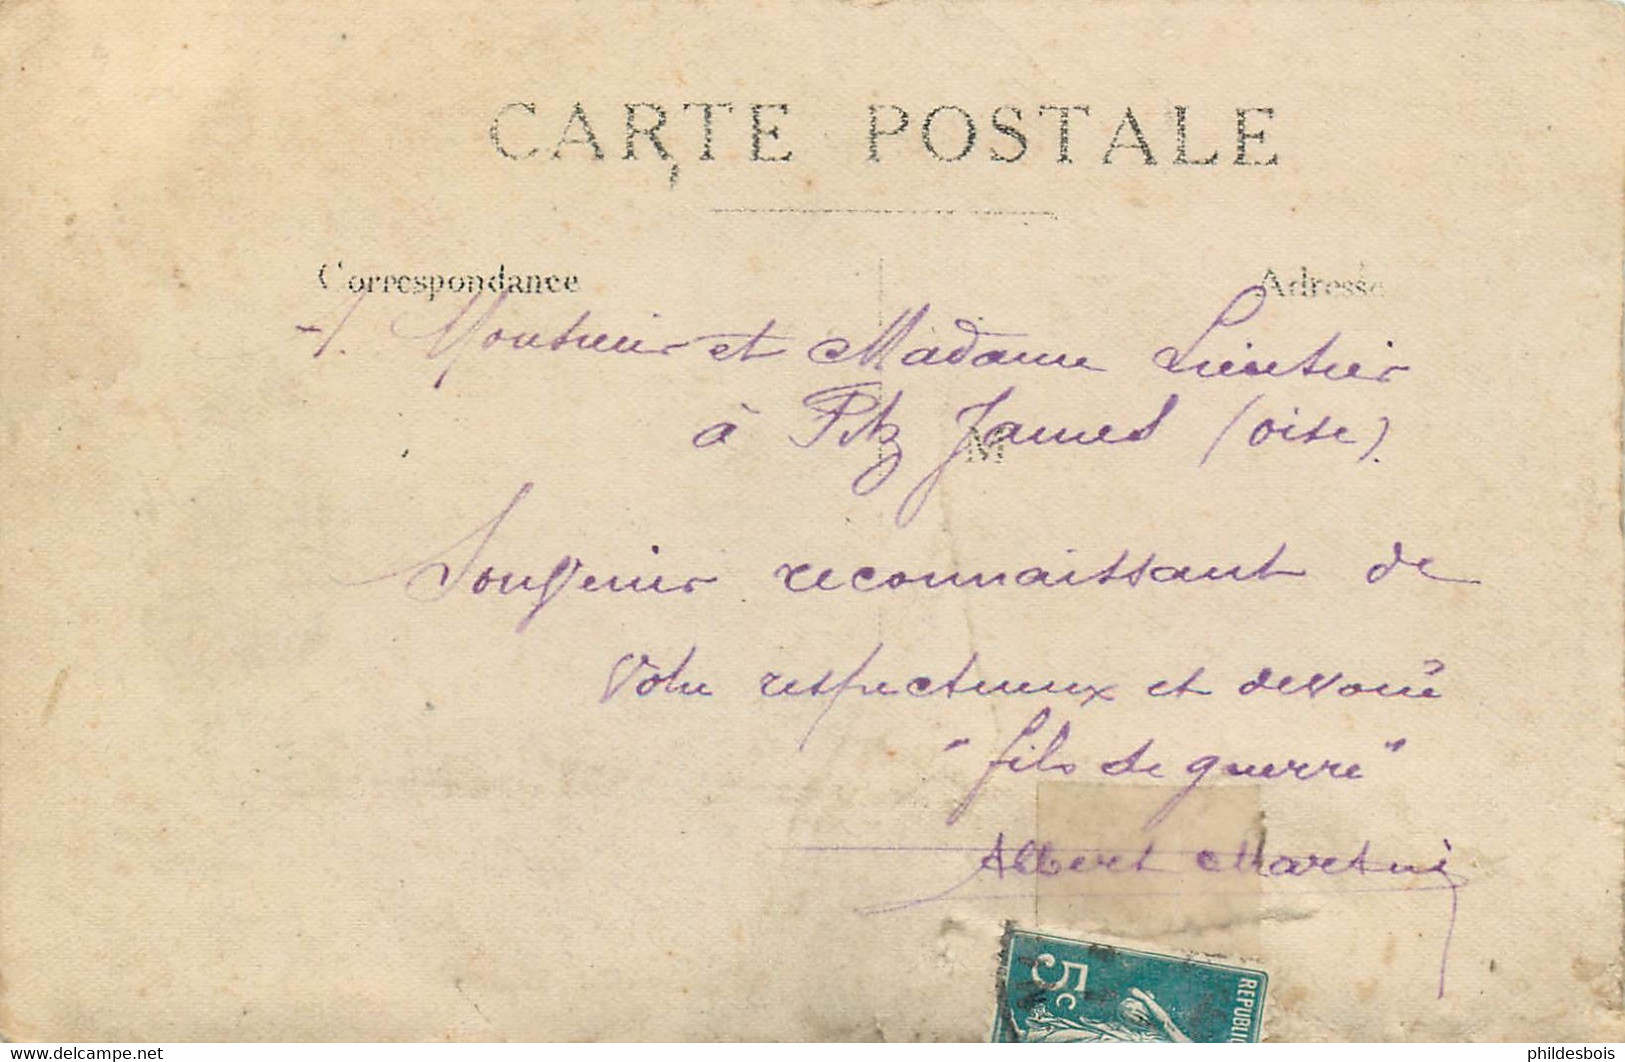 CARTE POSTALE
Correspondance
Adresse
A Monsieur et Madame
à Fitz James (oise).
M
Souvenir reconnaissant de
Votre respectueux et dévoué
"fils de guerre"
Albert Martin
5c
REPUBLI
delcampe.net
phildesbois